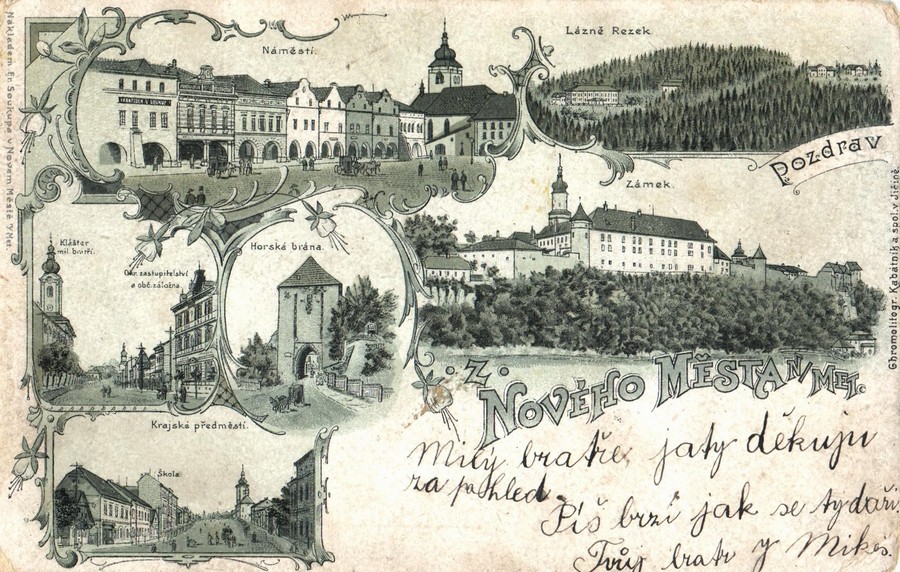 Nákladem Fr. Soukupa v Novém Městě n/Met.
Náměstí.
FRANTIŠEK V. SOUKUP
Lázně Rezek
Pozdrav
Zámek.
Klášter
mil. bratří.
Okr. zastupitelství
a obč. záložna.
Horská brána.
Chromolitogr. Kabátník a spol. v Jičíně.
z
Nového Města n/Met.
Krajské předměstí.
Škola
Milý bratře, jaty děkuju
za pohled
Piš brzi jak se ty daří.
Tvůj bratr J Mikes.